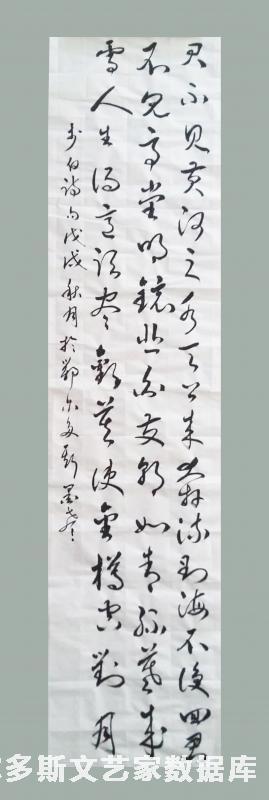 君不見黄河之水天上來奔流到海不復回君
不見高堂明鏡悲白发朝如青絲暮成
雪人生得意须尽歡莫使金樽空對月
李白詩句戊戌秋月於鄂尔多斯
尔多斯文艺家数据库